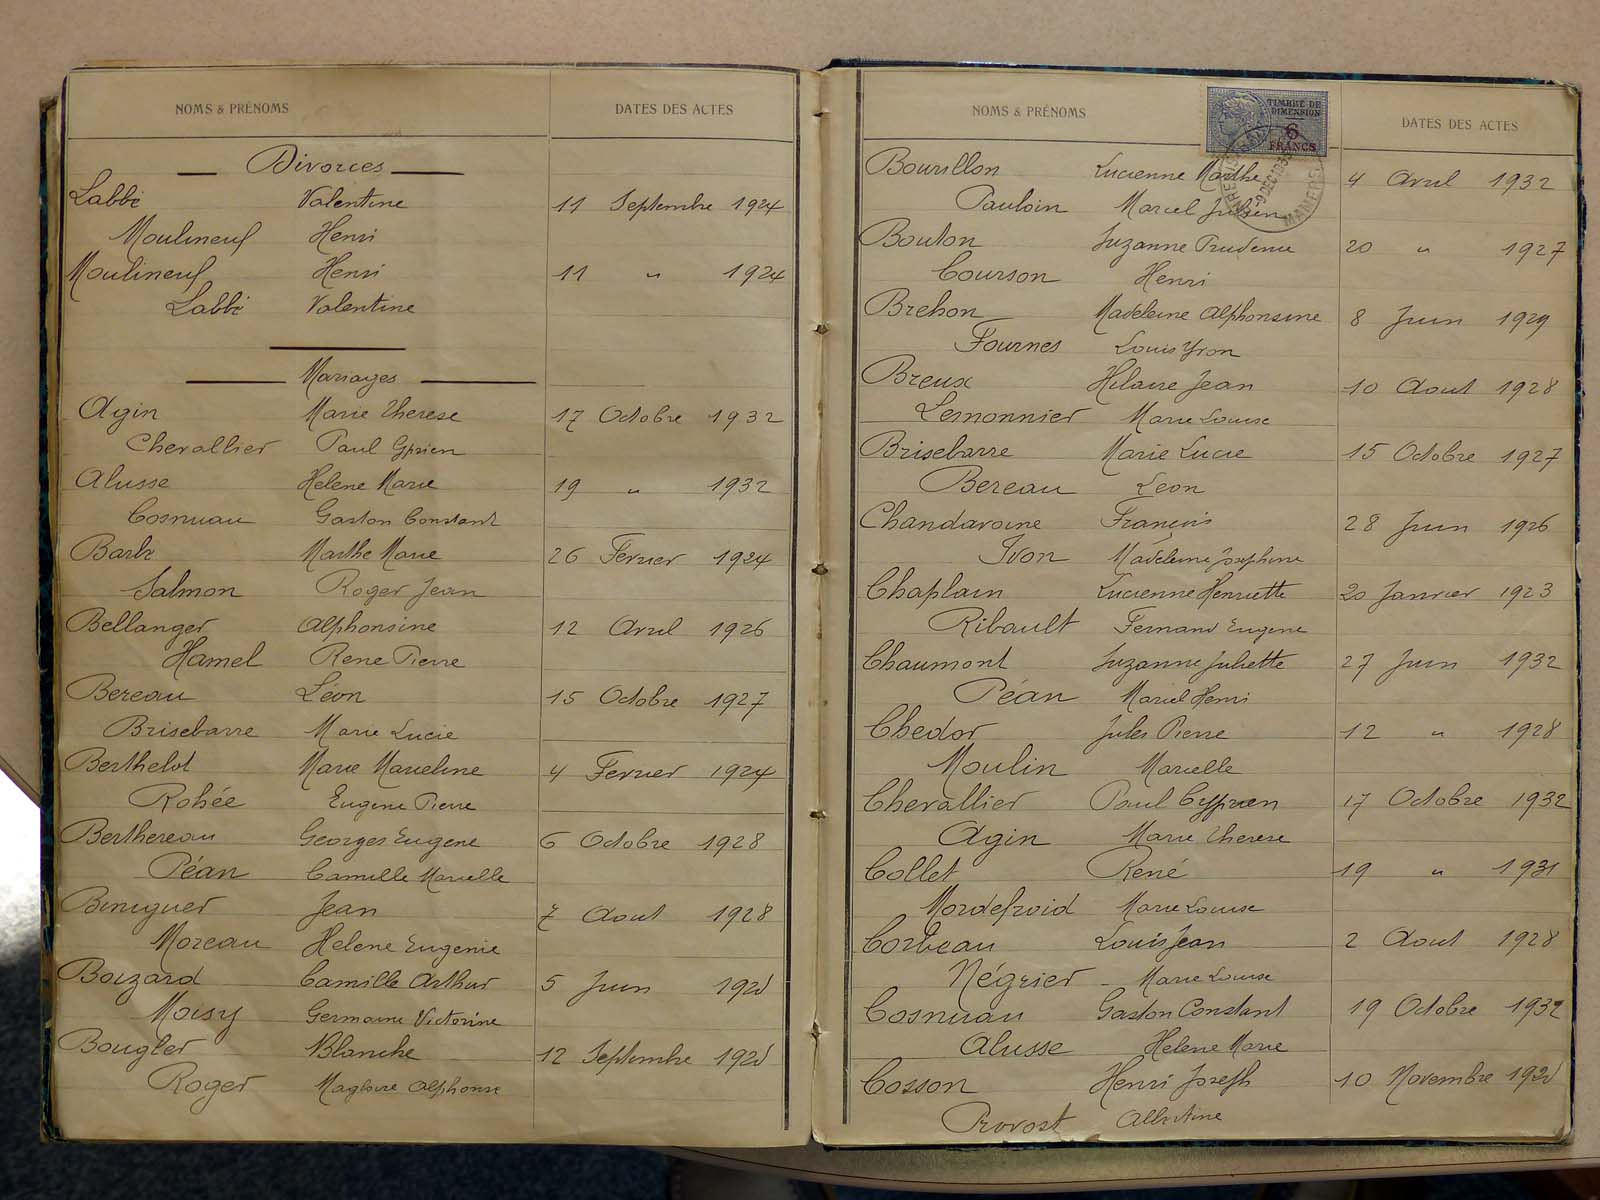 NOMS & PRÉNOMS DATES DES ACTES
Divorces
Labbé Valentine 11 Septembre 1924
Moulineuf Henri
Moulineuf Henri 11 " 1924
Labbé Valentine
Mariages
Agin Marie Therese 17 Octobre 1932
Chevallier Paul Cyprien
Alusse Helene Marie 19 " 1932
Cosnuau Gaston Constant
Barbé Marthe Marie 26 Fevrier 1924
Salmon Roger Jean
Bellanger Alphonsine 12 Avril 1926
Hamel Rene Pierre
Bereau Léon 15 Octobre 1927
Brisebarre Marie Lucie
Berthelot Marie Marceline 4 Fevrier 1924
Rohée Eugene Pierre
Berthereau Georges Eugene 6 Octobre 1928
Péan Camille Marcelle
Binuguer Jean 7 Aout 1928
Moreau Helene Eugenie
Boizard Camille Arthur 5 Juin
Moisy Germaine Victorine
Bougler Blanche 12 Septembre
Roger Magloire Alphonse
NOMS & PRÉNOMS DATES DES ACTES
TIMBRE DE DIMENSION
6 FRANCS
Bourillon Lucienne Marthe 4 Avril 1932
Pauloin Marcel Julien
Bouton Suzanne Prudence 20 " 1927
Courson Henri
Brehon Madeleine Alphonsine 8 Juin 1929
Fournes Louis Yvon
Breux Hilaire Jean 10 Aout 1928
Lemonnier Marie Louise
Brisebarre Marie Lucie 15 Octobre 1927
Bereau Leon
Chandavoine François 28 Juin 1926
Ivon Madeleine Josephine
Chaplain Lucienne Henriette 20 Janvier 1923
Ribault Fernand Eugene
Chaumont Suzanne Juliette 27 Juin 1932
Péan Marcel Henri
Chedor Jules Pierre 12 " 1928
Moulin Marcelle
Chevallier Paul Cyprien 17 Octobre 1932
Agin Marie Therese
Collet René 19 " 1931
Mordefroid Marie Louise
Corbeau Louis Jean 2 Aout 1928
Négrier Marie Louise
Cosnuau Gaston Constant 19 Octobre 1932
Alusse Helene Marie
Cosson Henri Joseph 10 Novembre
Provost Albertine